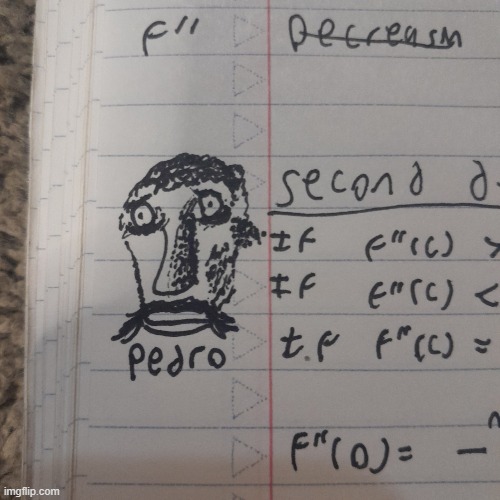 F" Decreasin
second d
If F"(c) >
If F"(c) <
If F"(c) =
pedro
F"(0) = -
imgflip.com